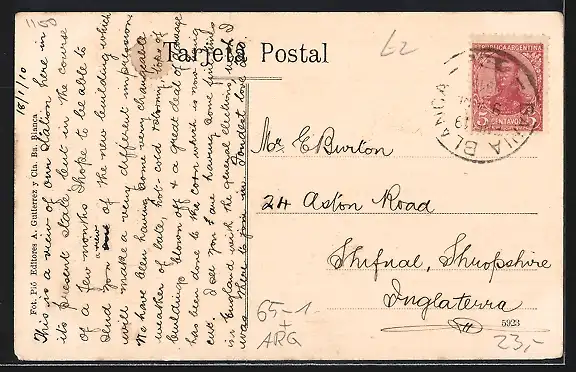 118
18/1/10
Tarjeta Postal
£2
REPUBLICA ARGENTINA
5 CENTAVOS 5
BAHIA BLANCA
Fot. Pló Editores A. Gutierrez y Cia. Ba. Blanca
This is a view of our Station here in
its present state but in the course
of a few months I hope to be able to
send you a view of the new building which
will make a very different impression
We have been having some very changeable
weather of late, hot-cold stormy, lots of
buildings blown off & a great deal of damage
has been done to the corn which is now being
cut. I see you are having some fine times
in England with the general elections, wish I
was there to join in Fondest love
Mr E Burton
24 Aston Road
Shifnal, Shropshire
Inglaterra
5923
65-1-
+
ARG
23,-